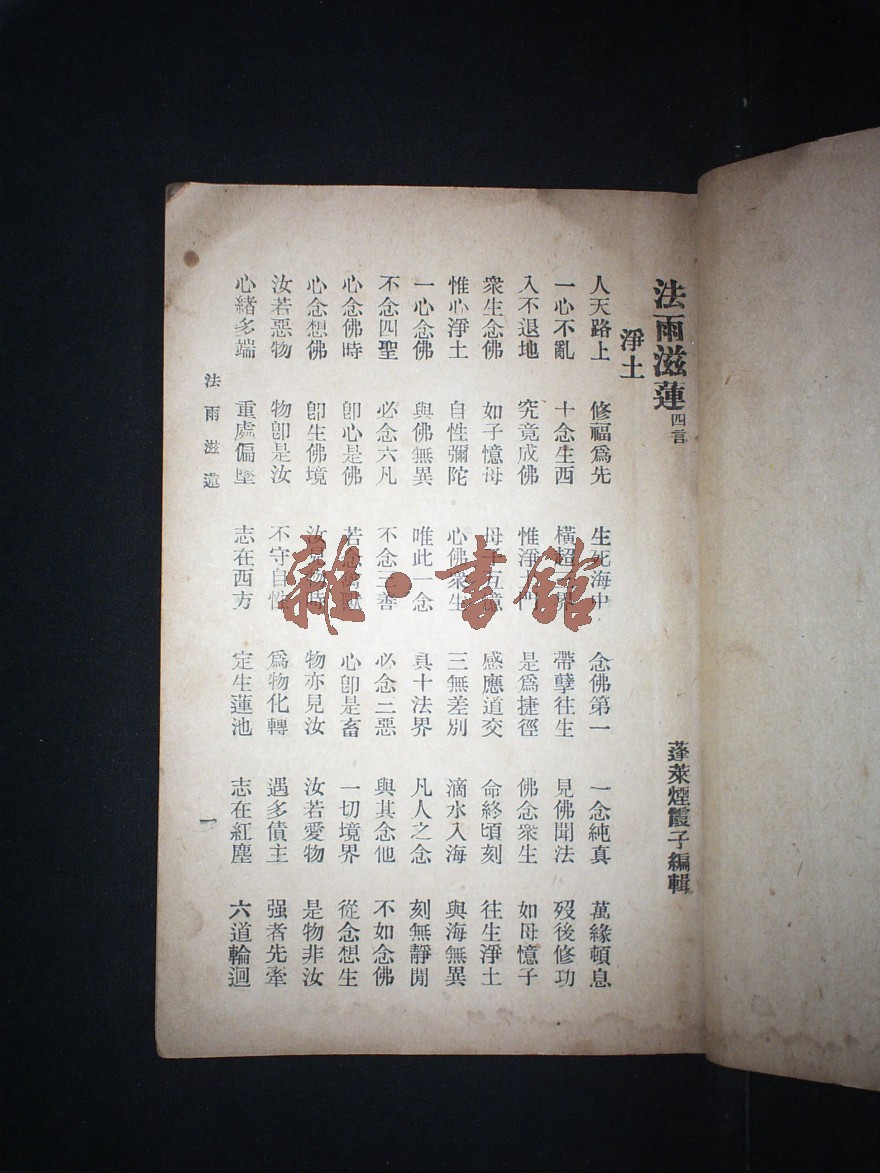 法雨滋蓮 四言
蓬萊煙霞子編輯
淨土
人天路上 修福爲先 生死海中 念佛第一 一念純真 萬緣頓息
一心不亂 十念生西 橫超界 帶孽往生 見佛聞法 歿後修功
入不退地 究竟成佛 惟淨門 是爲捷徑 佛念衆生 如母憶子
衆生念佛 如子憶母 母子互憶 感應道交 命終頃刻 往生淨土
惟心淨土 自性彌陀 心佛衆生 三無差別 滴水入海 與海無異
一心念佛 與佛無異 唯此一念 具十法界 凡人之念 刻無靜閒
不念四聖 必念六凡 不念三善 必念三惡 與其念他 不如念佛
心念佛時 卽心是佛 若念獸 心卽是畜 一切境界 從念想生
心念想佛 卽生佛境 汝見物時 物亦見汝 汝若愛物 是物非汝
汝若惡物 物卽是汝 不守自性 爲物化轉 遇多債主 强者先牽
心緒多端 重處偏墜 志在西方 定生蓮池 志在紅塵 六道輪迴
法雨滋蓮 一
雜·書館